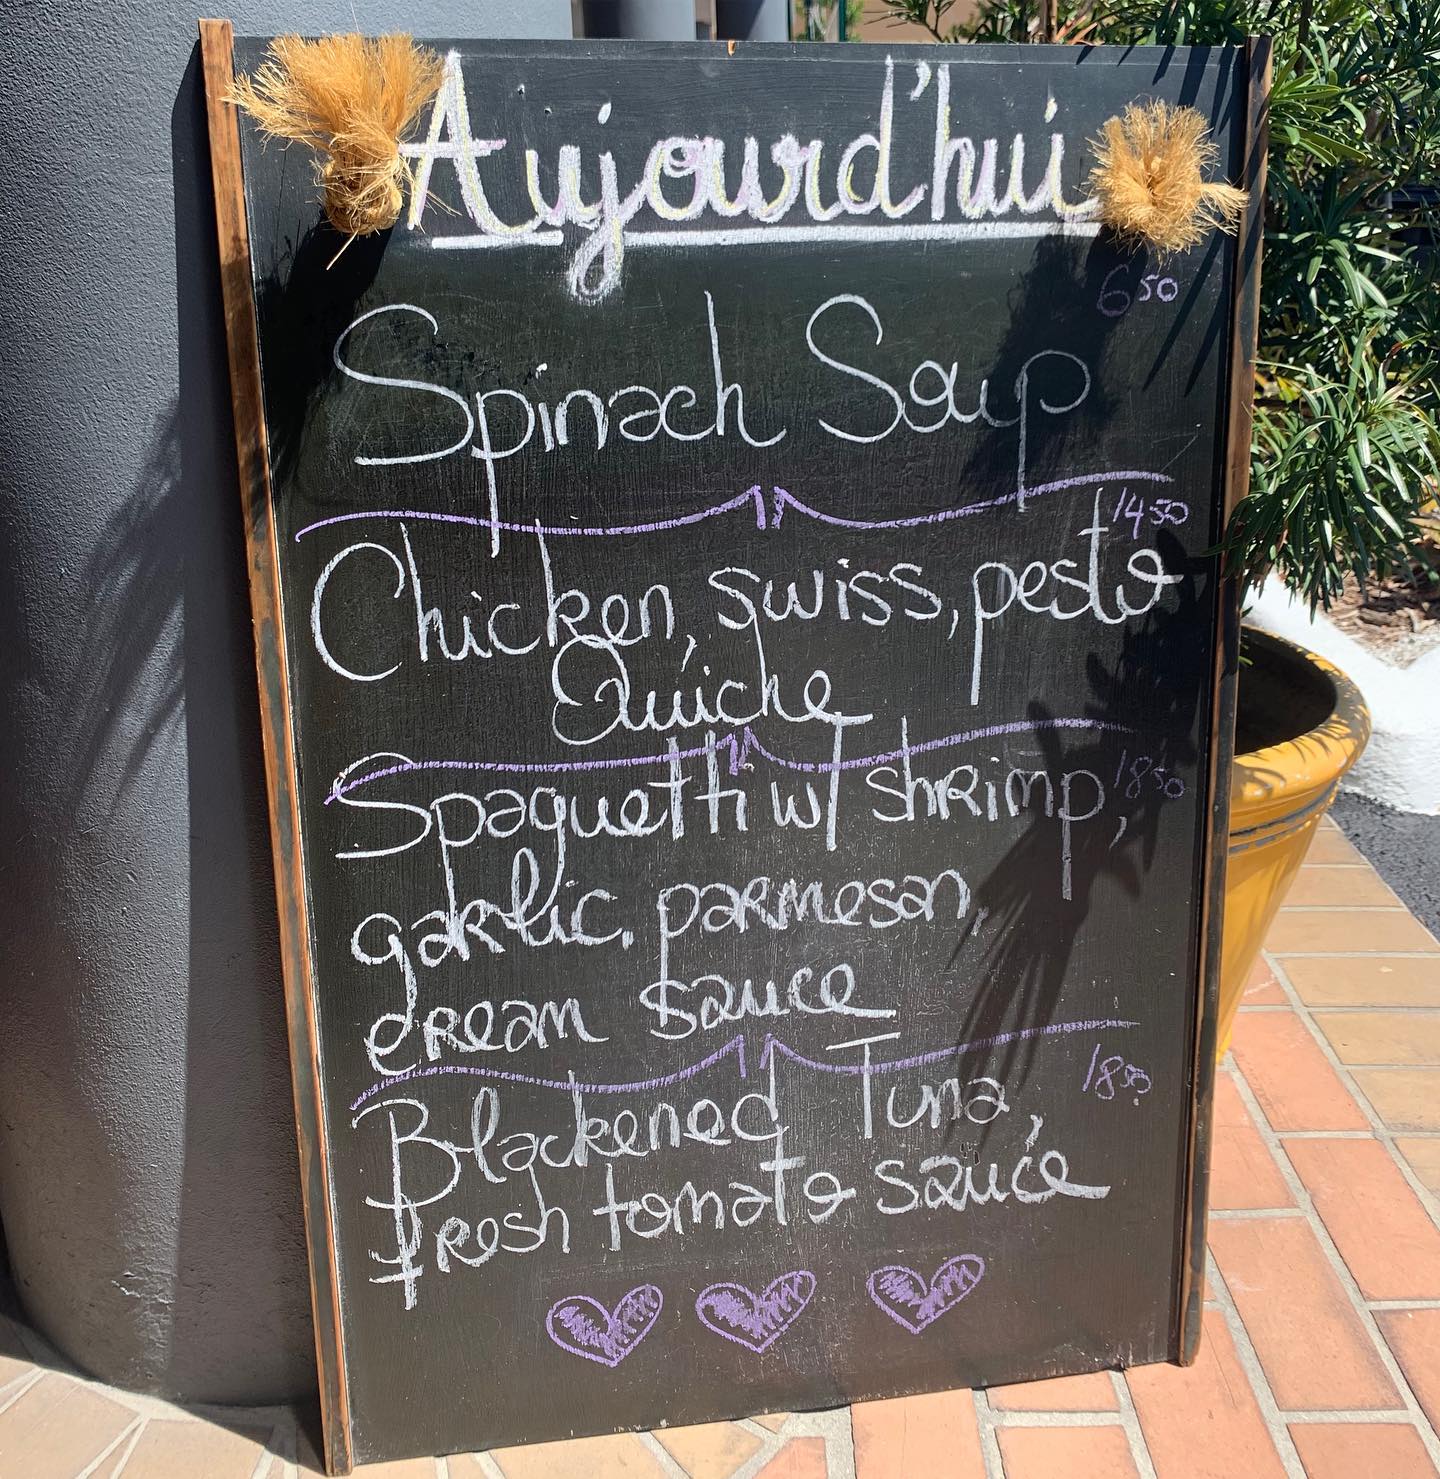 Aujourd'hui
6.50
Spinach Soup
14.50
Chicken, swiss, pesto
Quiche
Spaguetti w/ shrimp, 18.50
garlic, parmesan,
cream sauce
18.50
Blackened Tuna,
fresh tomato sauce